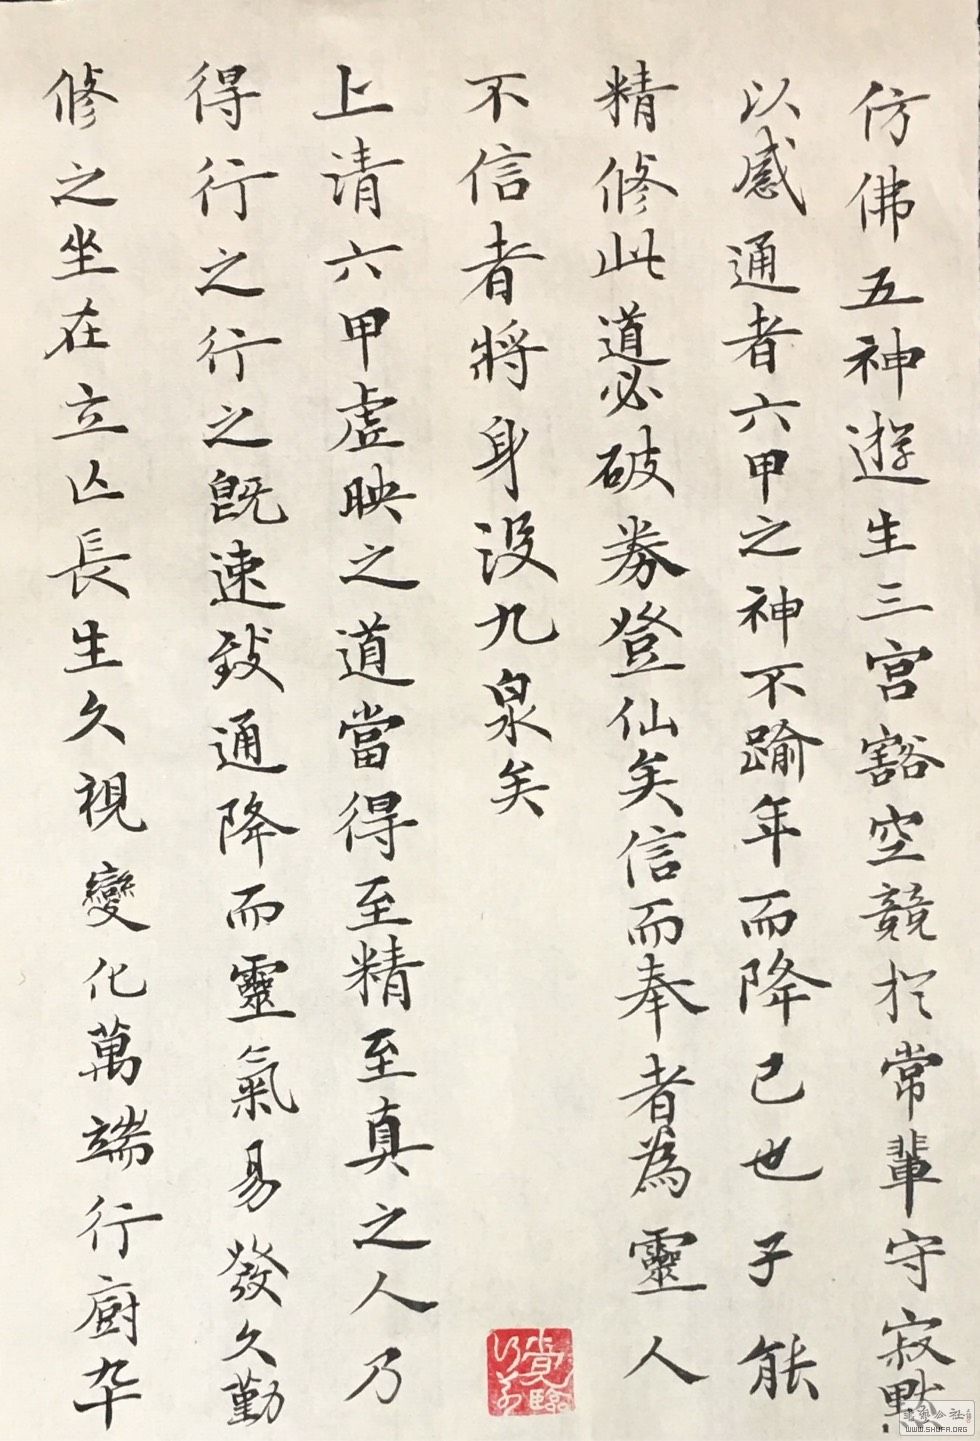 仿佛五神遊生三宮豁空競於常輩守寂默
以感通者六甲之神不踰年而降己也子能
精修此道必破券登仙矣信而奉者為靈人
不信者將身沒九泉矣
上清六甲虛映之道當得至精至真之人乃
得行之行之既速致通降而靈氣易發久勤
修之坐在立亡長生久視變化萬端行廚卒
WWW.SHUFA.ORG